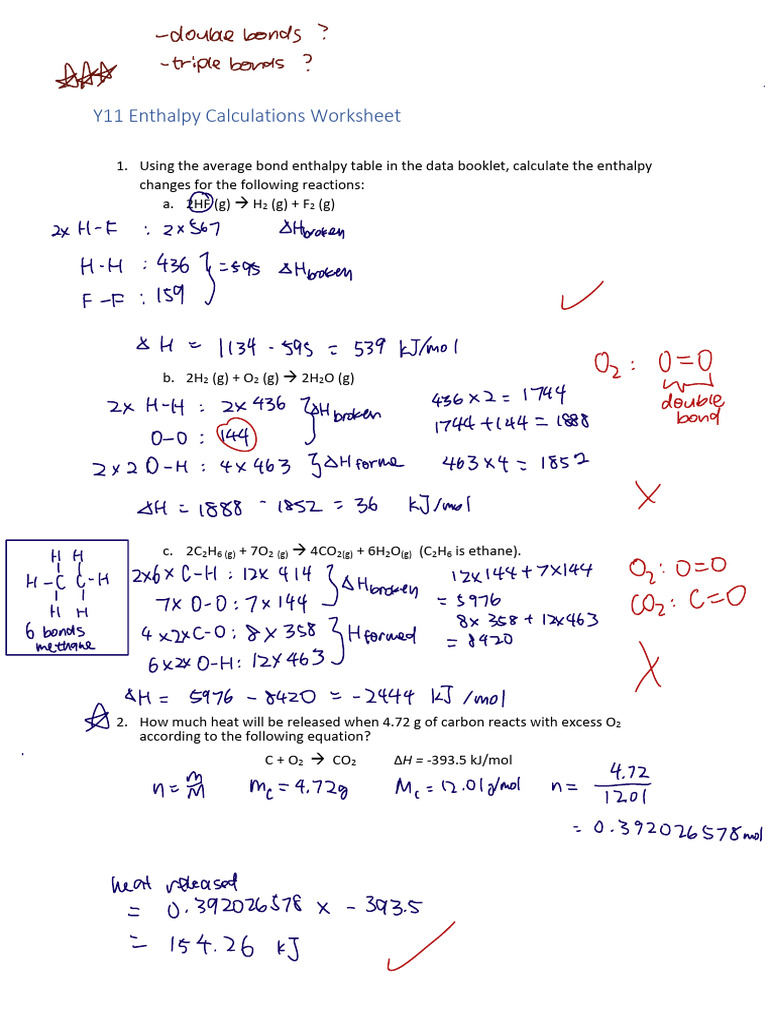 -double bonds ?
-triple bonds ?
Y11 Enthalpy Calculations Worksheet
1. Using the average bond enthalpy table in the data booklet, calculate the enthalpy
changes for the following reactions:
a. 2HF (g) → H₂ (g) + F₂ (g)
2x H-F : 2 x 567 ΔHbroken
H-H : 436 } = 595 ΔHbroken
F-F : 159
ΔH = 1134 - 595 = 539 kJ/mol
b. 2H₂ (g) + O₂ (g) → 2H₂O (g)
O₂ : O=O
double
bond
2x H-H : 2x 436 } ΔHbroken 436 x 2 = 1744
O-O : 144 1744 + 144 = 1888
2 x 2 O-H : 4 x 463 } ΔH forme 463 x 4 = 1852
ΔH = 1888 - 1852 = 36 kJ/mol
c. 2C₂H₆ (g) + 7O₂ (g) → 4CO₂(g) + 6H₂O(g) (C₂H₆ is ethane).
H H
H-C C-H
H H
6 bonds
methane
2x6x C-H : 12x 414 } ΔHbroken 12x144 + 7x144
7x O-O : 7 x 144 = 5976
4 x2x C-O : 8 x 358 } Hformed 8x 358 + 12x463
6x2x O-H : 12x463 = 8420
O₂ : O=O
CO₂ : C=O
ΔH = 5976 - 8420 = -2444 kJ/mol
2. How much heat will be released when 4.72 g of carbon reacts with excess O₂
according to the following equation?
C + O₂ → CO₂ ΔH = -393.5 kJ/mol
n = m/M mc = 4.72g Mc = 12.01g/mol n = 4.72/1201
= 0.392026578mol
heat released
= 0.392026578 x - 393.5
= 154.26 kJ